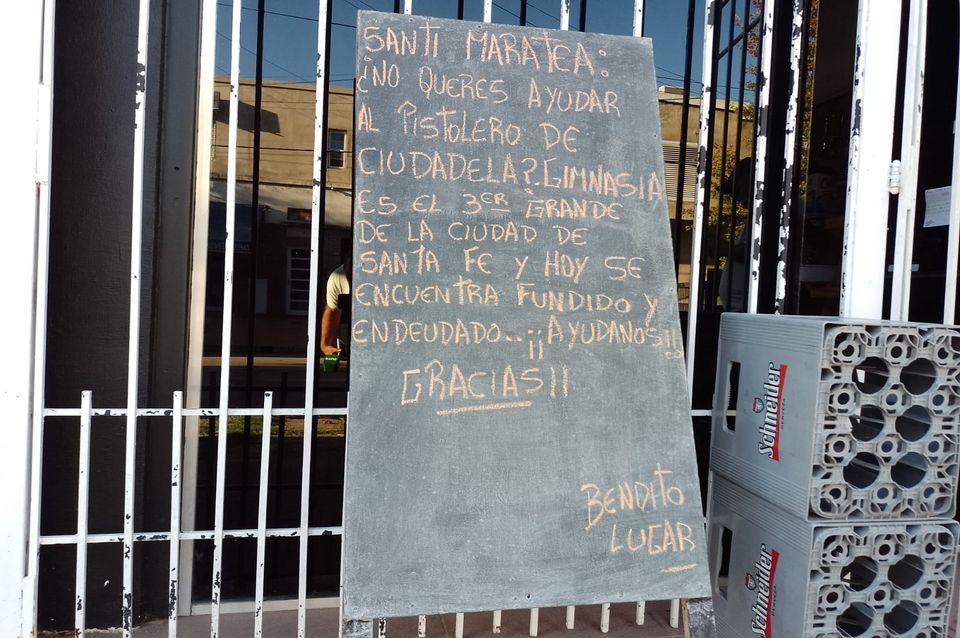 SANTI MARATEA:
¿NO QUERES AYUDAR
AL PISTOLERO DE
CIUDADELA?. GIMNASIA
ES EL 3ER GRANDE
DE LA CIUDAD DE
SANTA FE Y HOY SE
ENCUENTRA FUNDIDO Y
ENDEUDADO... ¡¡AYUDANOS!!
GRACIAS!!
BENDITO
LUGAR
Schneider
Schneider